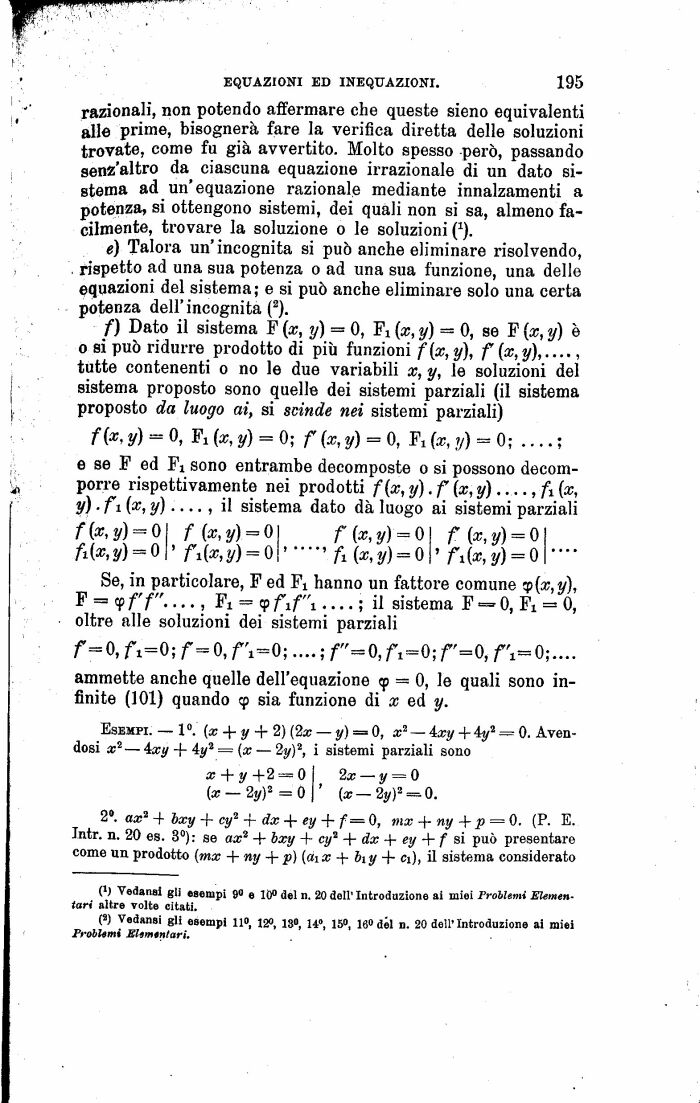 EQUAZIONI ED INEQUAZIONI. 195
razionali, non potendo affermare che queste sieno equivalenti
alle prime, bisognerà fare la verifica diretta delle soluzioni
trovate, come fu già avvertito. Molto spesso però, passando
senz'altro da ciascuna equazione irrazionale di un dato si-
stema ad un'equazione razionale mediante innalzamenti a
potenza, si ottengono sistemi, dei quali non si sa, almeno fa-
cilmente, trovare la soluzione o le soluzioni (¹).
e) Talora un'incognita si può anche eliminare risolvendo,
rispetto ad una sua potenza o ad una sua funzione, una delle
equazioni del sistema; e si può anche eliminare solo una certa
potenza dell'incognita (²).
f) Dato il sistema F (x, y) = 0, F₁ (x, y) = 0, se F (x, y) è
o si può ridurre prodotto di più funzioni f (x, y), f′ (x, y),....,
tutte contenenti o no le due variabili x, y, le soluzioni del
sistema proposto sono quelle dei sistemi parziali (il sistema
proposto da luogo ai, si scinde nei sistemi parziali)
f (x, y) = 0, F₁ (x, y) = 0; f′ (x, y) = 0, F₁ (x, y) = 0; ....;
e se F ed F₁ sono entrambe decomposte o si possono decom-
porre rispettivamente nei prodotti f (x, y) . f′ (x, y) ...., f₁ (x,
y) . f′₁ (x, y) ...., il sistema dato dà luogo ai sistemi parziali
f (x, y) = 0 | f (x, y) = 0 | f′ (x, y) = 0 | f′ (x, y) = 0 |
f₁(x, y) = 0 |, f′₁(x, y) = 0 |, ....., f₁ (x, y) = 0 |, f′₁(x, y) = 0 | ....
Se, in particolare, F ed F₁ hanno un fattore comune φ(x, y),
F = φ f′ f″...., F₁ = φ f′₁ f″₁ ....; il sistema F = 0, F₁ = 0,
oltre alle soluzioni dei sistemi parziali
f′=0, f′₁=0; f′=0, f″₁=0; ....; f″=0, f′₁=0; f″=0, f″₁=0;....
ammette anche quelle dell'equazione φ = 0, le quali sono in-
finite (101) quando φ sia funzione di x ed y.
ESEMPI. — 1⁰. (x + y + 2) (2x — y) = 0, x² — 4xy + 4y² = 0. Aven-
dosi x² — 4xy + 4y² = (x — 2y)², i sistemi parziali sono
x + y +2 = 0 | 2x — y = 0
(x — 2y)² = 0 |, (x — 2y)² = 0.
2⁰. ax² + bxy + cy² + dx + ey + f = 0, mx + ny + p = 0. (P. E.
Intr. n. 20 es. 3⁰): se ax² + bxy + cy² + dx + ey + f si può presentare
come un prodotto (mx + ny + p) (a₁x + b₁y + c₁), il sistema considerato
(¹) Vedansi gli esempi 9⁰ e 10⁰ del n. 20 dell'Introduzione ai miei Problemi Elemen-
tari altre volte citati.
(²) Vedansi gli esempi 11⁰, 12⁰, 13⁰, 14⁰, 15⁰, 16⁰ del n. 20 dell'Introduzione ai miei
Problemi Elementari.